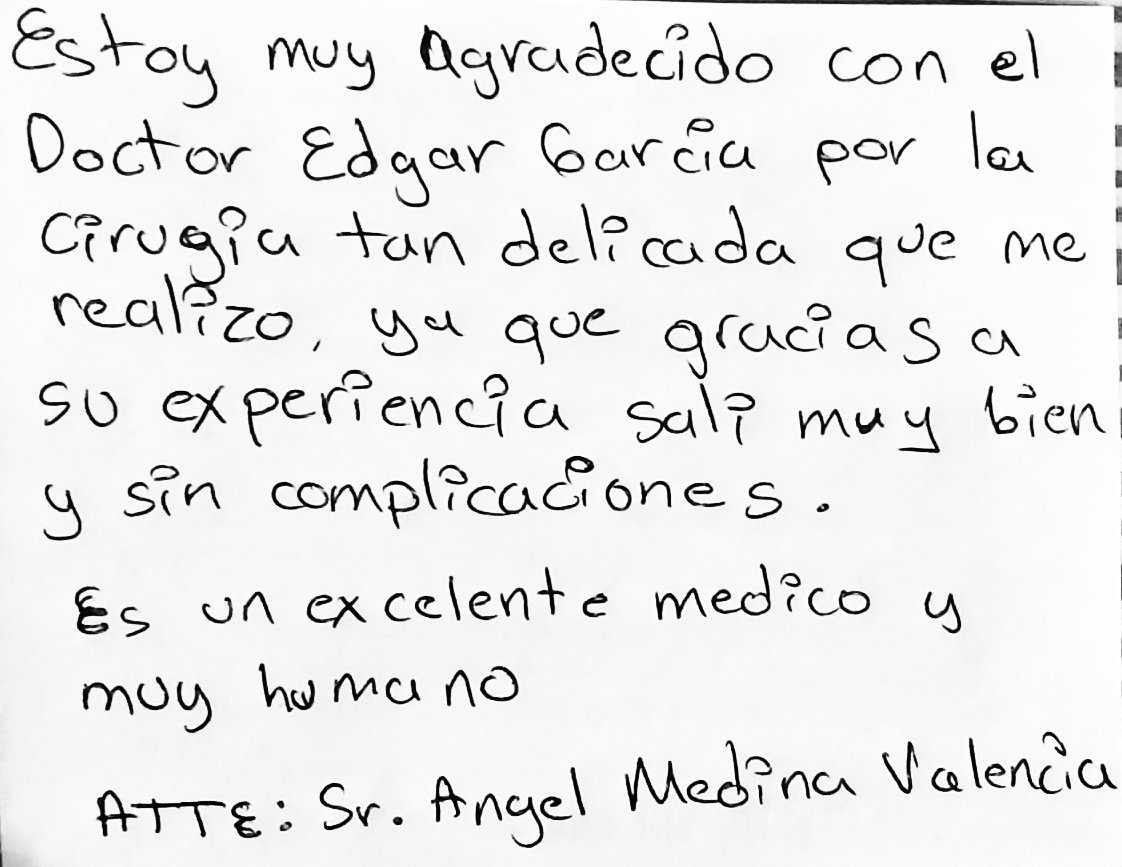 Estoy muy agradecido con el
Doctor Edgar Garcia por la
cirugia tan delicada que me
realizo, ya que gracias a
su experiencia sali muy bien
y sin complicaciones.
Es un excelente medico y
muy humano
ATTE: Sr. Angel Medina Valencia